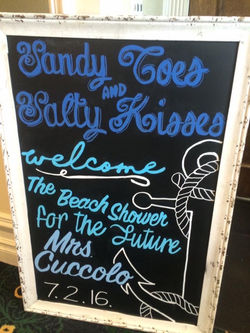 Sandy Toes
AND
Salty Kisses
welcome
The Beach Shower
for the Future
Mrs.
Cuccolo
7.2.16.